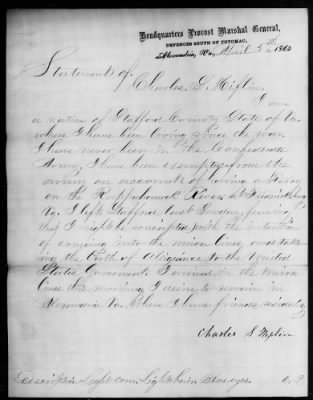 Headquarters Provost Marshal General,
DEFENCES SOUTH OF POTOMAC,
Alexandria, Va., April 5th 1865
Statement of
Charles S.
I am
a native of Stafford County State of Va.
where I have been living since the war.
I have never been in the Confederate
Army, I have been exempt from the
army on account of having a Ferry
on the Rappahannock River at Fredericksburg
Va. I left Stafford last Sunday fearing
that I might be conscripted with the intention
of coming into the union lines and tak-
ing the Oath of Allegiance to the United
States Government I arrived in the Union
lines this morning I desire to remain in
Alexandria Va. where I have friends residing
Charles S
Description Light com. Light hair Blue eyes.